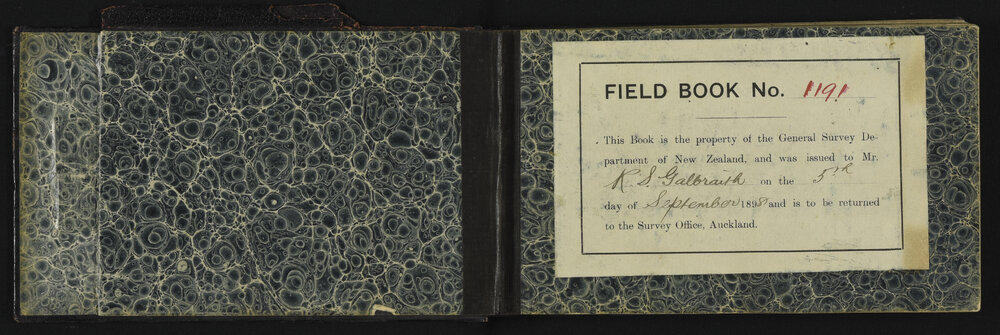 FIELD BOOK No. 1191
This Book is the property of the General Survey De-
partment of New Zealand, and was issued to Mr.
R. S. Galbraith on the 5th
day of September 1898 and is to be returned
to the Survey Office, Auckland.